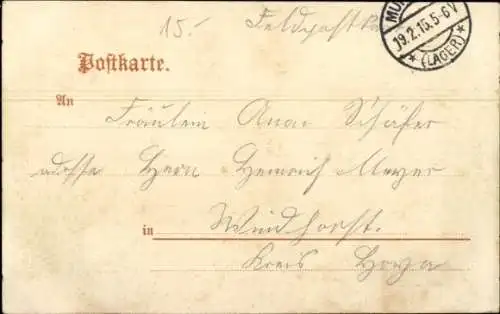 15.- Feldpost
MUN
19.2.15. 5-6V
* (LAGER) *
Postkarte.
An
Fräulein Anna Schäfer
adresse Herrn Heinrich Meyer
in Windhorst.
Kreis Hoya